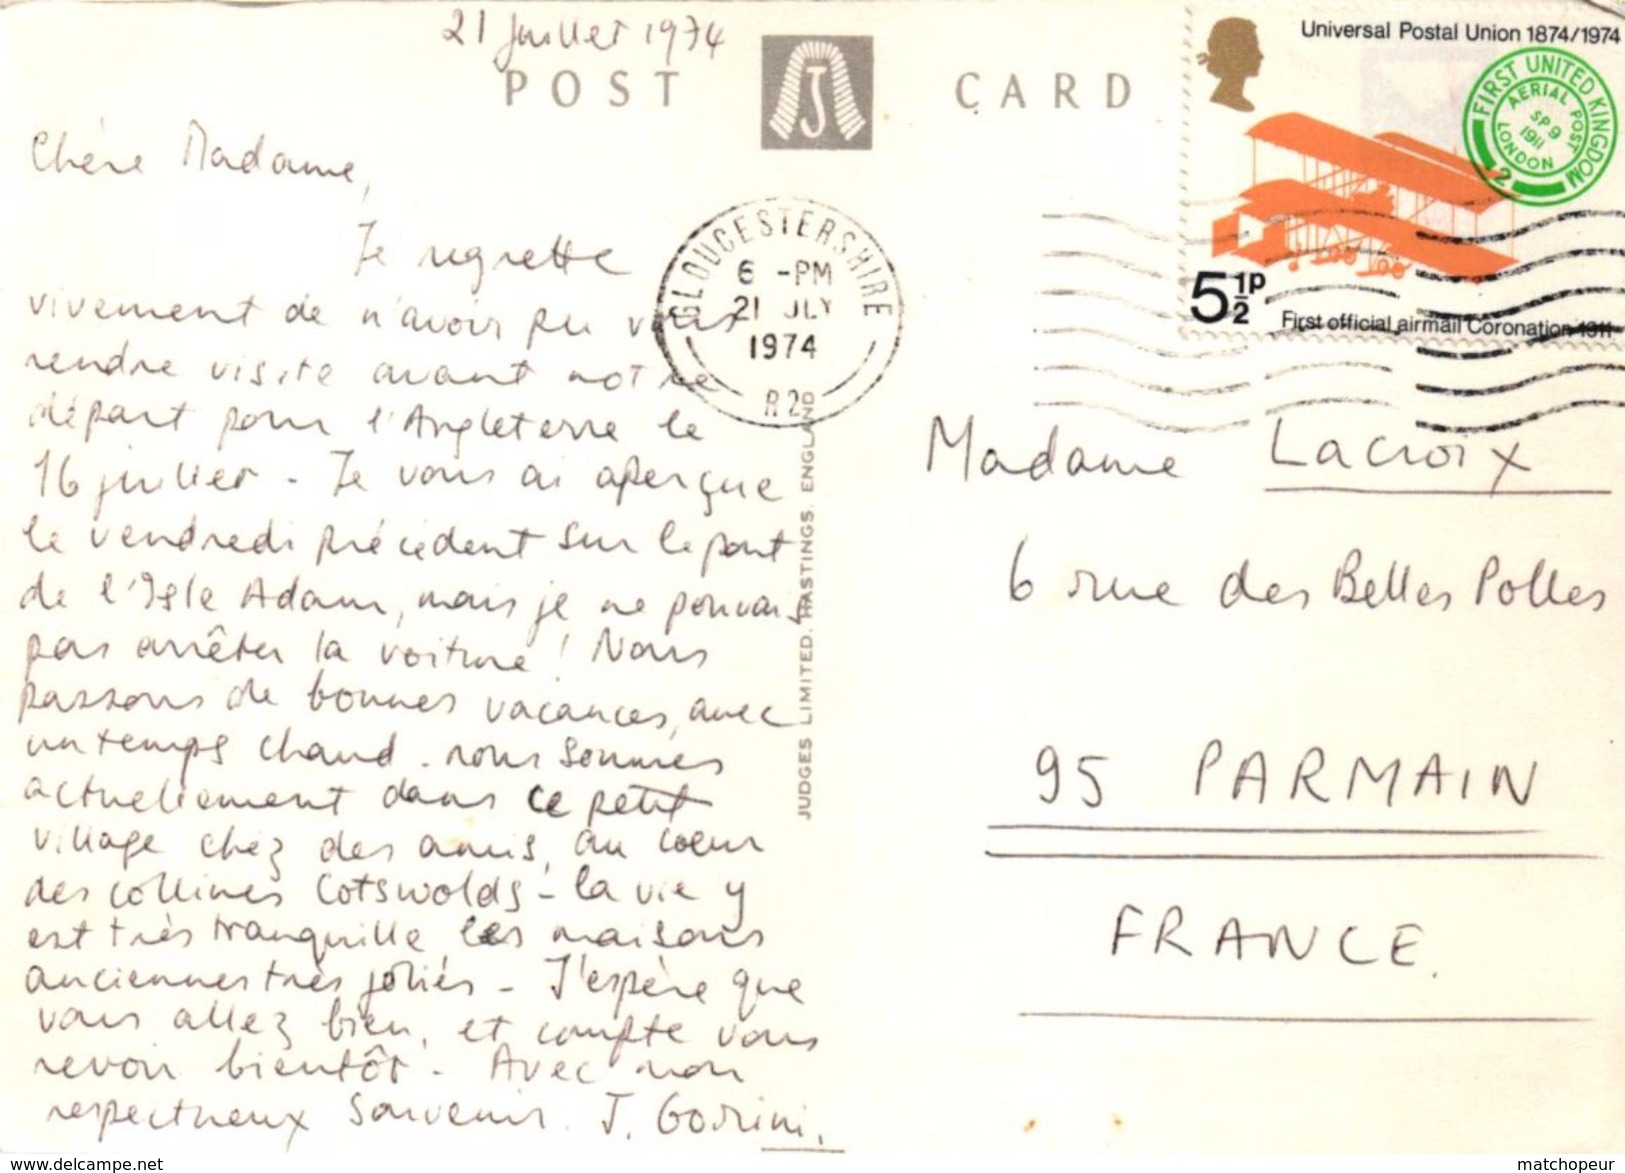 21 Juillet 1974
POST CARD
Universal Postal Union 1874/1974
FIRST UNITED KINGDOM
AERIAL POST
SP 9
1911
LONDON
2
5½p
First official airmail Coronation 1911
GLOUCESTERSHIRE
6 -PM
21 JLY
1974
R2
Chère Madame,
Je regrette
vivement de n'avoir pu vous
rendre visite avant notre
départ pour l'Angleterre le
16 juillet - Je vous ai aperçue
le vendredi précédent sur le pont
de l'Isle Adam, mais je ne pouvais
pas arrêter la voiture ! Nous
passons de bonnes vacances, avec
un temps chaud. nous sommes
actuellement dans ce petit
village chez des amis, au coeur
des collines Cotswolds - la vie y
est très tranquille les maisons
anciennes très jolies - J'espère que
vous allez bien, et compte vous
revoir bientôt - Avec mon
respectueux souvenir. J. Gorini.
JUDGES LIMITED. HASTINGS. ENGLAND
Madame Lacroix
6 rue des Belles Polles
95 PARMAIN
FRANCE.
www.delcampe.net
matchopeur